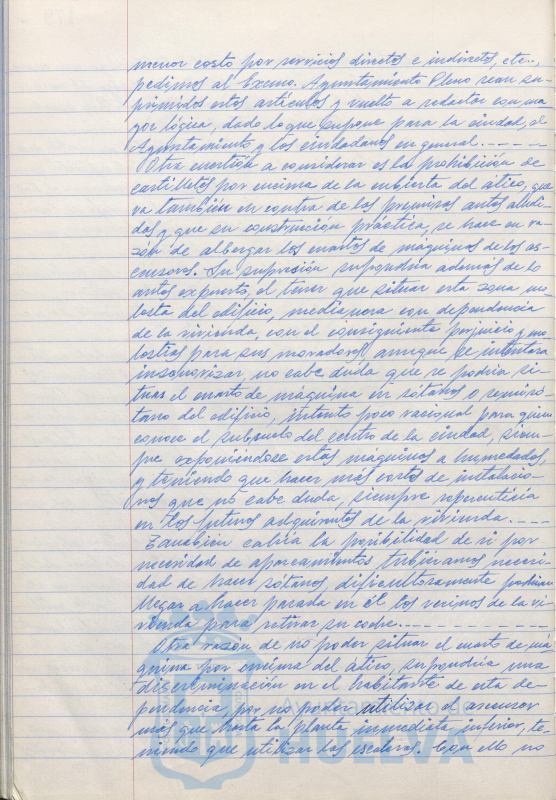 menor costo por servicios directos e indirectos, etc..,
pedimos al Excmo. Ayuntamiento Pleno sean su-
primidos estos artículos y vuelto a redactar con ma-
yor lógica, dado lo que supone para la ciudad, el
Ayuntamiento y los ciudadanos en general.-----
Otra cuestión a considerar es la prohibición de
castilletes por encima de la cubierta del ático, que
va también en contra de las premisas antes aludi-
das y que en construcción práctica, se hace en ra-
zón de albergar los cuartos de máquinas de los as-
censores. Su supresión supondría además de lo
antes expuesto, el tener que situar esta zona mo-
lesta del edificio, medianera con dependencia
de la vivienda, con el consiguiente perjuicio y mo-
lestias para sus moradores, aunque se intentara
insonorizar, no cabe duda que se podría si-
tuar el cuarto de máquina en sótanos o semisó-
tano del edificio, intento poco racional para quien
conoce el subsuelo del centro de la ciudad, siem-
pre exponiéndose estas máquinas a humedades,
y teniendo que hacer más costos de instalacio-
nes que no cabe duda, siempre repercutiría
en los futuros adquirentes de la vivienda.----
También cabría la posibilidad de si por
necesidad de aparcamientos tubiéramos necesi-
dad de hacer sótanos, dificultosamente podrían
llegar a hacer parada en él los vecinos de la vi-
vienda para retirar su coche.----------
Otra razón de no poder situar el cuarto de má-
quina por encima del ático, supondría una
discriminación en el habitante de esta de-
pendencia por no poder utilizar el ascensor
más que hasta la planta inmediata inferior, te-
niendo que utilizar las escaleras. Con ello no
HUELVA